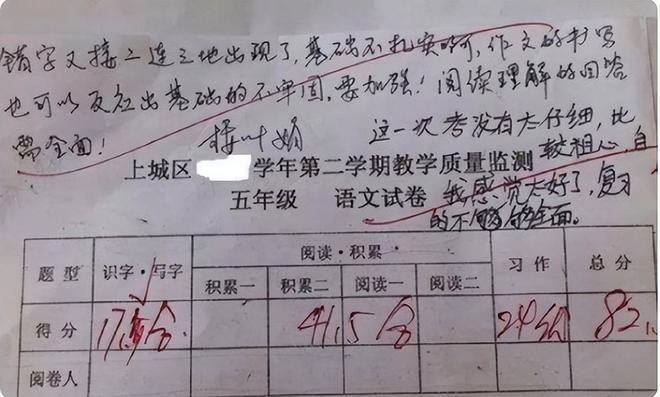 错字又接二连三地出现了,基础不扎实啊,作文的书写
也可以反应出基础的不牢固,要加强!阅读理解的回答
需全面! 这一次考没有太仔细,比
上城区 学年第二学期教学质量监测 较粗心,自
五年级 语文试卷 我感觉太好了,复习
的不够全面。
题型 识字·写字 阅读·积累 习作 总分
积累一 积累二 阅读一 阅读二
得分 41.5分 24分 82
阅卷人